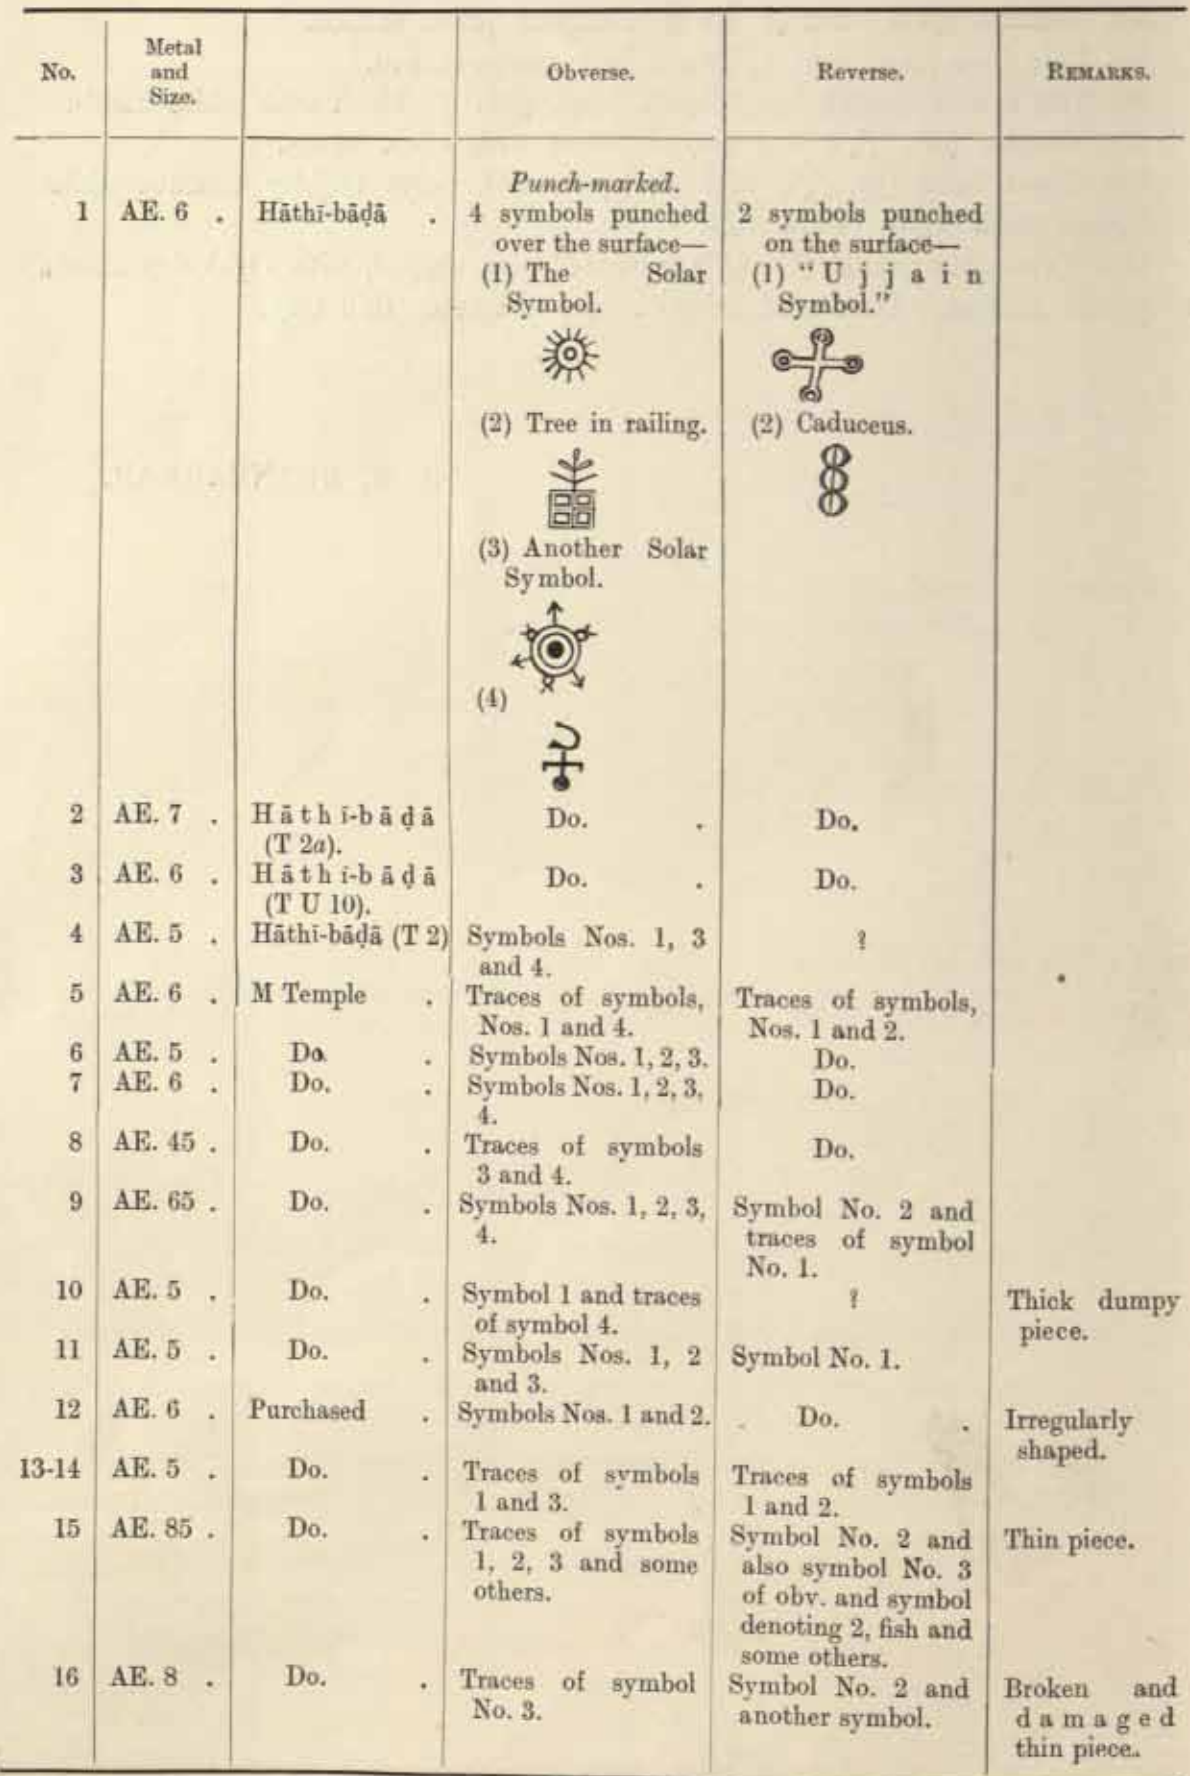 No. | Metal and Size. | | Obverse. | Reverse. | REMARKS.
Punch-marked.
1 | AE. 6 . | Hāthī-bāḍā . | 4 symbols punched over the surface— | 2 symbols punched on the surface—
(1) The Solar Symbol. | (1) "Ujjain Symbol."
(2) Tree in railing. | (2) Caduceus.
(3) Another Solar Symbol.
(4)
2 | AE. 7 . | Hāthī-bāḍā (T 2a). | Do. . | Do.
3 | AE. 6 . | Hāthī-bāḍā (T U 10). | Do. . | Do.
4 | AE. 5 . | Hāthī-bāḍā (T 2) | Symbols Nos. 1, 3 and 4. | ?
5 | AE. 6 . | M Temple . | Traces of symbols, Nos. 1 and 4. | Traces of symbols, Nos. 1 and 2.
6 | AE. 5 . | Do. . | Symbols Nos. 1, 2, 3. | Do.
7 | AE. 6 . | Do. . | Symbols Nos. 1, 2, 3, 4. | Do.
8 | AE. 45 . | Do. . | Traces of symbols 3 and 4. | Do.
9 | AE. 65 . | Do. . | Symbols Nos. 1, 2, 3, 4. | Symbol No. 2 and traces of symbol No. 1.
10 | AE. 5 . | Do. . | Symbol 1 and traces of symbol 4. | ? | Thick dumpy piece.
11 | AE. 5 . | Do. . | Symbols Nos. 1, 2 and 3. | Symbol No. 1.
12 | AE. 6 . | Purchased . | Symbols Nos. 1 and 2. | Do. . | Irregularly shaped.
13-14 | AE. 5 . | Do. . | Traces of symbols 1 and 3. | Traces of symbols 1 and 2.
15 | AE. 85 . | Do. . | Traces of symbols 1, 2, 3 and some others. | Symbol No. 2 and also symbol No. 3 of obv. and symbol denoting 2, fish and some others. | Thin piece.
16 | AE. 8 . | Do. . | Traces of symbol No. 3. | Symbol No. 2 and another symbol. | Broken and damaged thin piece.